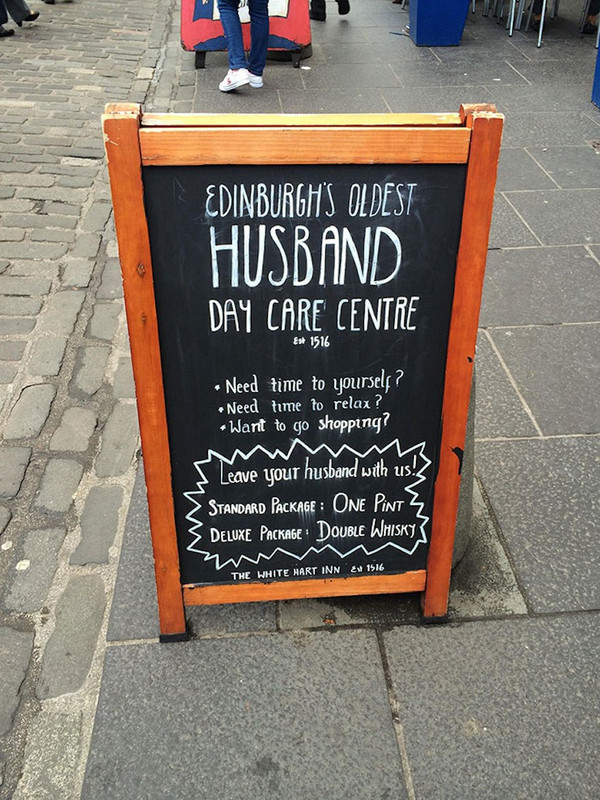 EDINBURGH'S OLDEST
HUSBAND
DAY CARE CENTRE
Est 1516
* Need time to yourself?
* Need time to relax?
* Want to go shopping?
Leave your husband with us!
STANDARD PACKAGE: ONE PINT
DELUXE PACKAGE: DOUBLE WHISKY
THE WHITE HART INN Est 1516